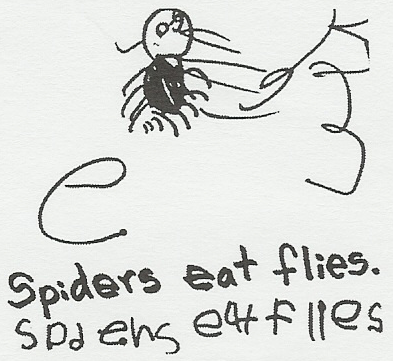 e
Spiders eat flies.
spdehs eat flies